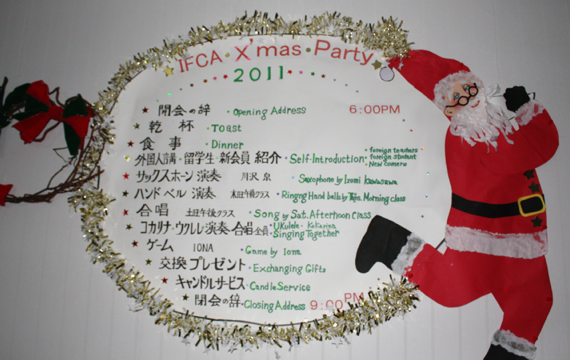 IFCA・X'mas・Party
2011
開会の辞 ・Opening Address 6:00PM
乾杯 ・Toast
食事 ・Dinner
外国人講・留学生・新会員 紹介 ・Self-Introduction ・foreign teachers
・foreign student
・New comers
サックスホーン演奏 川沢泉 Saxophone by Izumi Kawasawa
ハンドベル演奏 木曜午後クラス Morning class
合唱 土曜午後クラス ・Song by Sat. Afternoon Class
コカリナ・ウクレレ演奏・合唱 全員 ・Ukulele・Kokarina
・Singing Together
ゲーム IONA ・Game by Iona
交換プレゼント ・Exchanging Gifts
キャンドルサービス ・Candle Service
閉会の辞 ・Closing Address 9:00PM